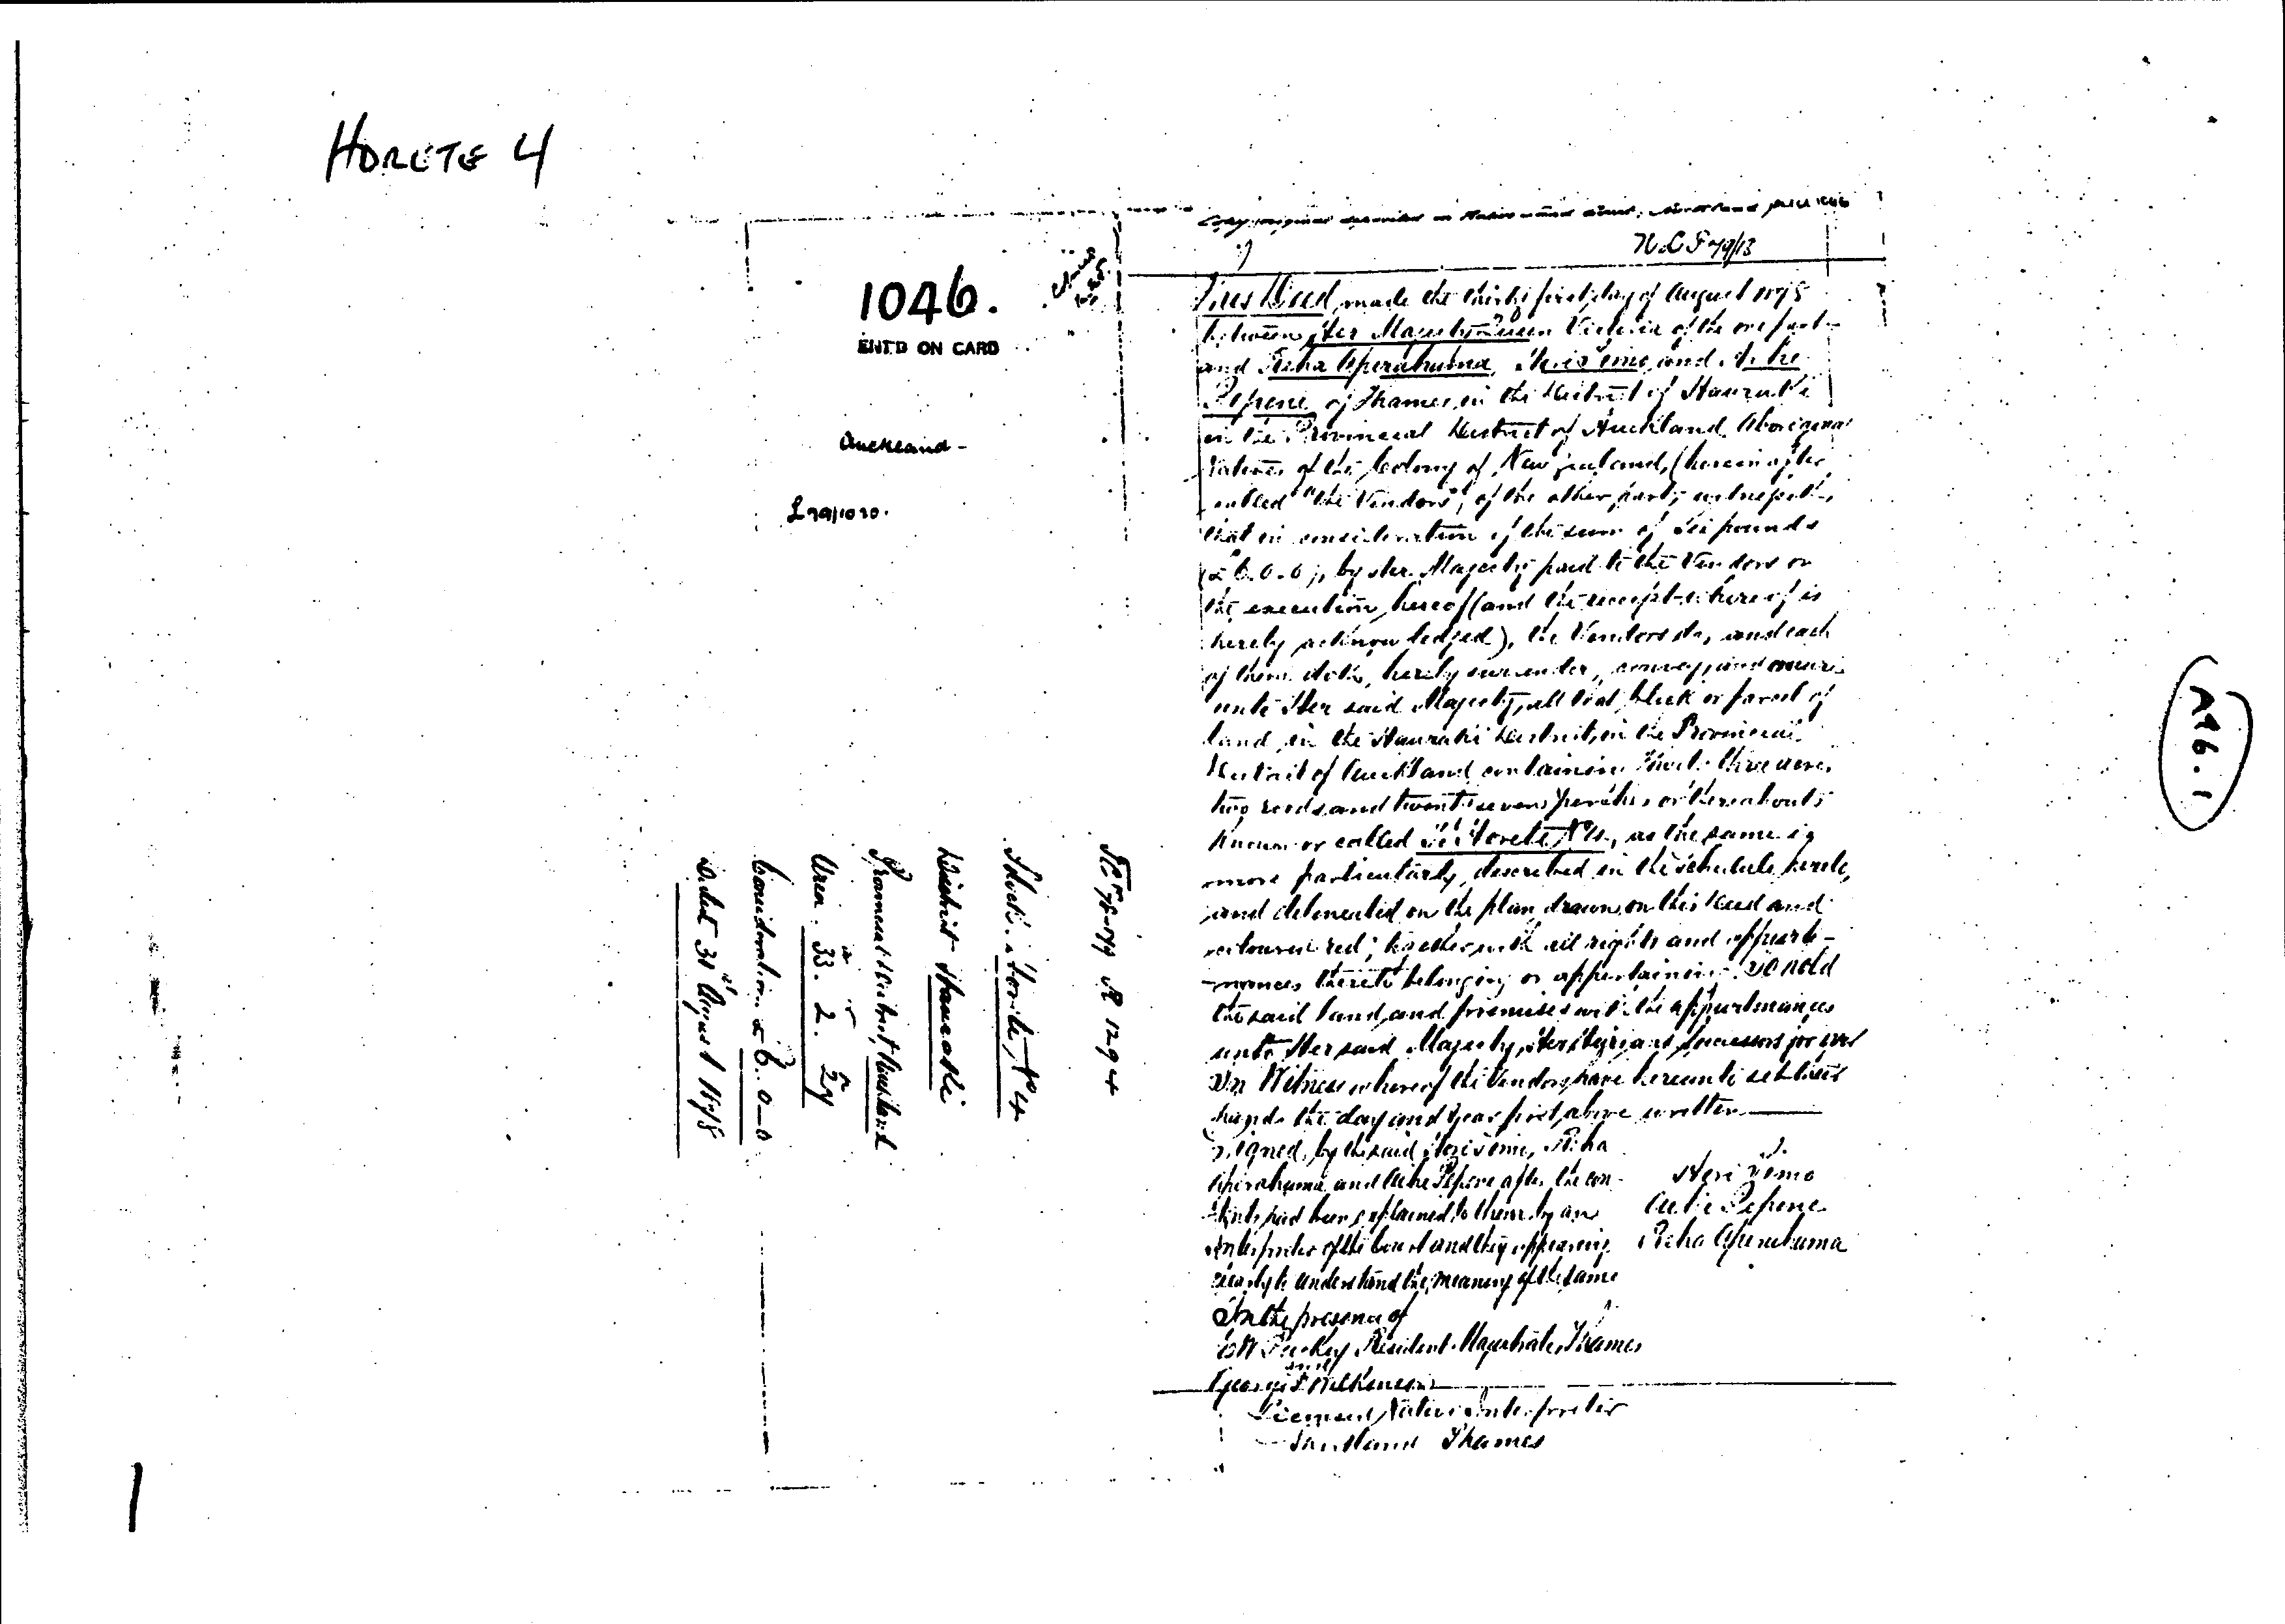 HORETE 4
1046.
ENT'D ON CARD
Auckland -
N.L.P 79/13
This Deed, made the thirty first day of August 1878
between Her Majesty Queen Victoria of the one part
and Reha Aperahama, Heri Teimo, and
Pepene of Thames, in the District of Hauraki
in the Provincial District of Auckland, Aboriginal
Natives of the Colony of New Zealand, (hereinafter
called "the Vendors", of the other part, witnesseth,
that in consideration of the sum of Six pounds
(£6.0.0), by Her Majesty paid to the Vendors on
the execution hereof (and the receipt whereof is
hereby acknowledged), the Vendors do, and each
of them doth, hereby surrender, convey, and
unto Her said Majesty, all that block or parcel of
land in the Hauraki District, in the Provincial
District of Auckland containing three acres,
two roods and twenty seven perches or thereabouts
known or called Te Horete No 4, as the same is
more particularly described in the schedule hereto,
and delineated on the plan drawn on this Deed and
coloured red; together with all rights and appurte-
nances thereto belonging or appertaining. To hold
the said land and premises with the appurtenances
unto Her said Majesty, Her Heirs and Successors for ever
In Witness whereof the Vendors have hereunto set their
hands the day and year first above written
Signed, by the said Heri Teimo, Reha
Aperahama and Pepene after the con-
tents had been explained to them by an
Interpreter of the Court and they appearing
clearly to understand the meaning of the same
In the presence of
E W Puckey Resident Magistrate, Thames
and
George T Wilkinson
Licensed Native Interpreter
Shortland Thames
Heri Teimo
Pepene
Reha Aperahama
Horete No 4
District Hauraki
Provincial District, Auckland
Area. 33. 2. 27
Consideration £6. 0-0
Dated 31st August 1878
A96.1
1